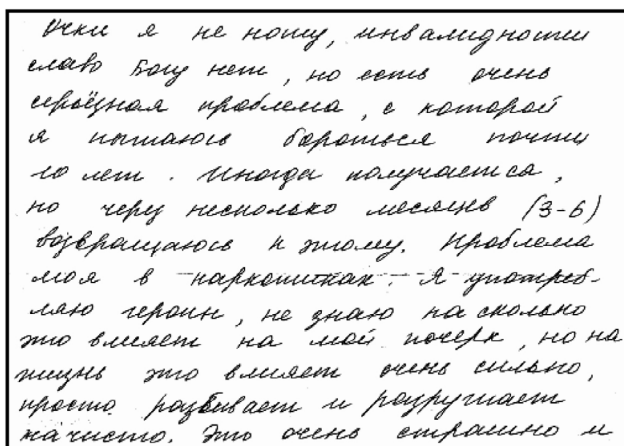 Очки я не ношу, инвалидности
славо Богу нет, но есть очень
серьёзная проблема, с которой
я пытаюсь бороться почти
10 лет. Иногда получается,
но через несколько месяцев (3-6)
возвращаюсь к этому. Проблема
моя в наркотиках. Я употреб-
ляю героин, не знаю на сколько
это влияет на мой почерк, но на
жизнь это влияет очень сильно,
просто разбивает и разрушает
начисто. Это очень страшно и